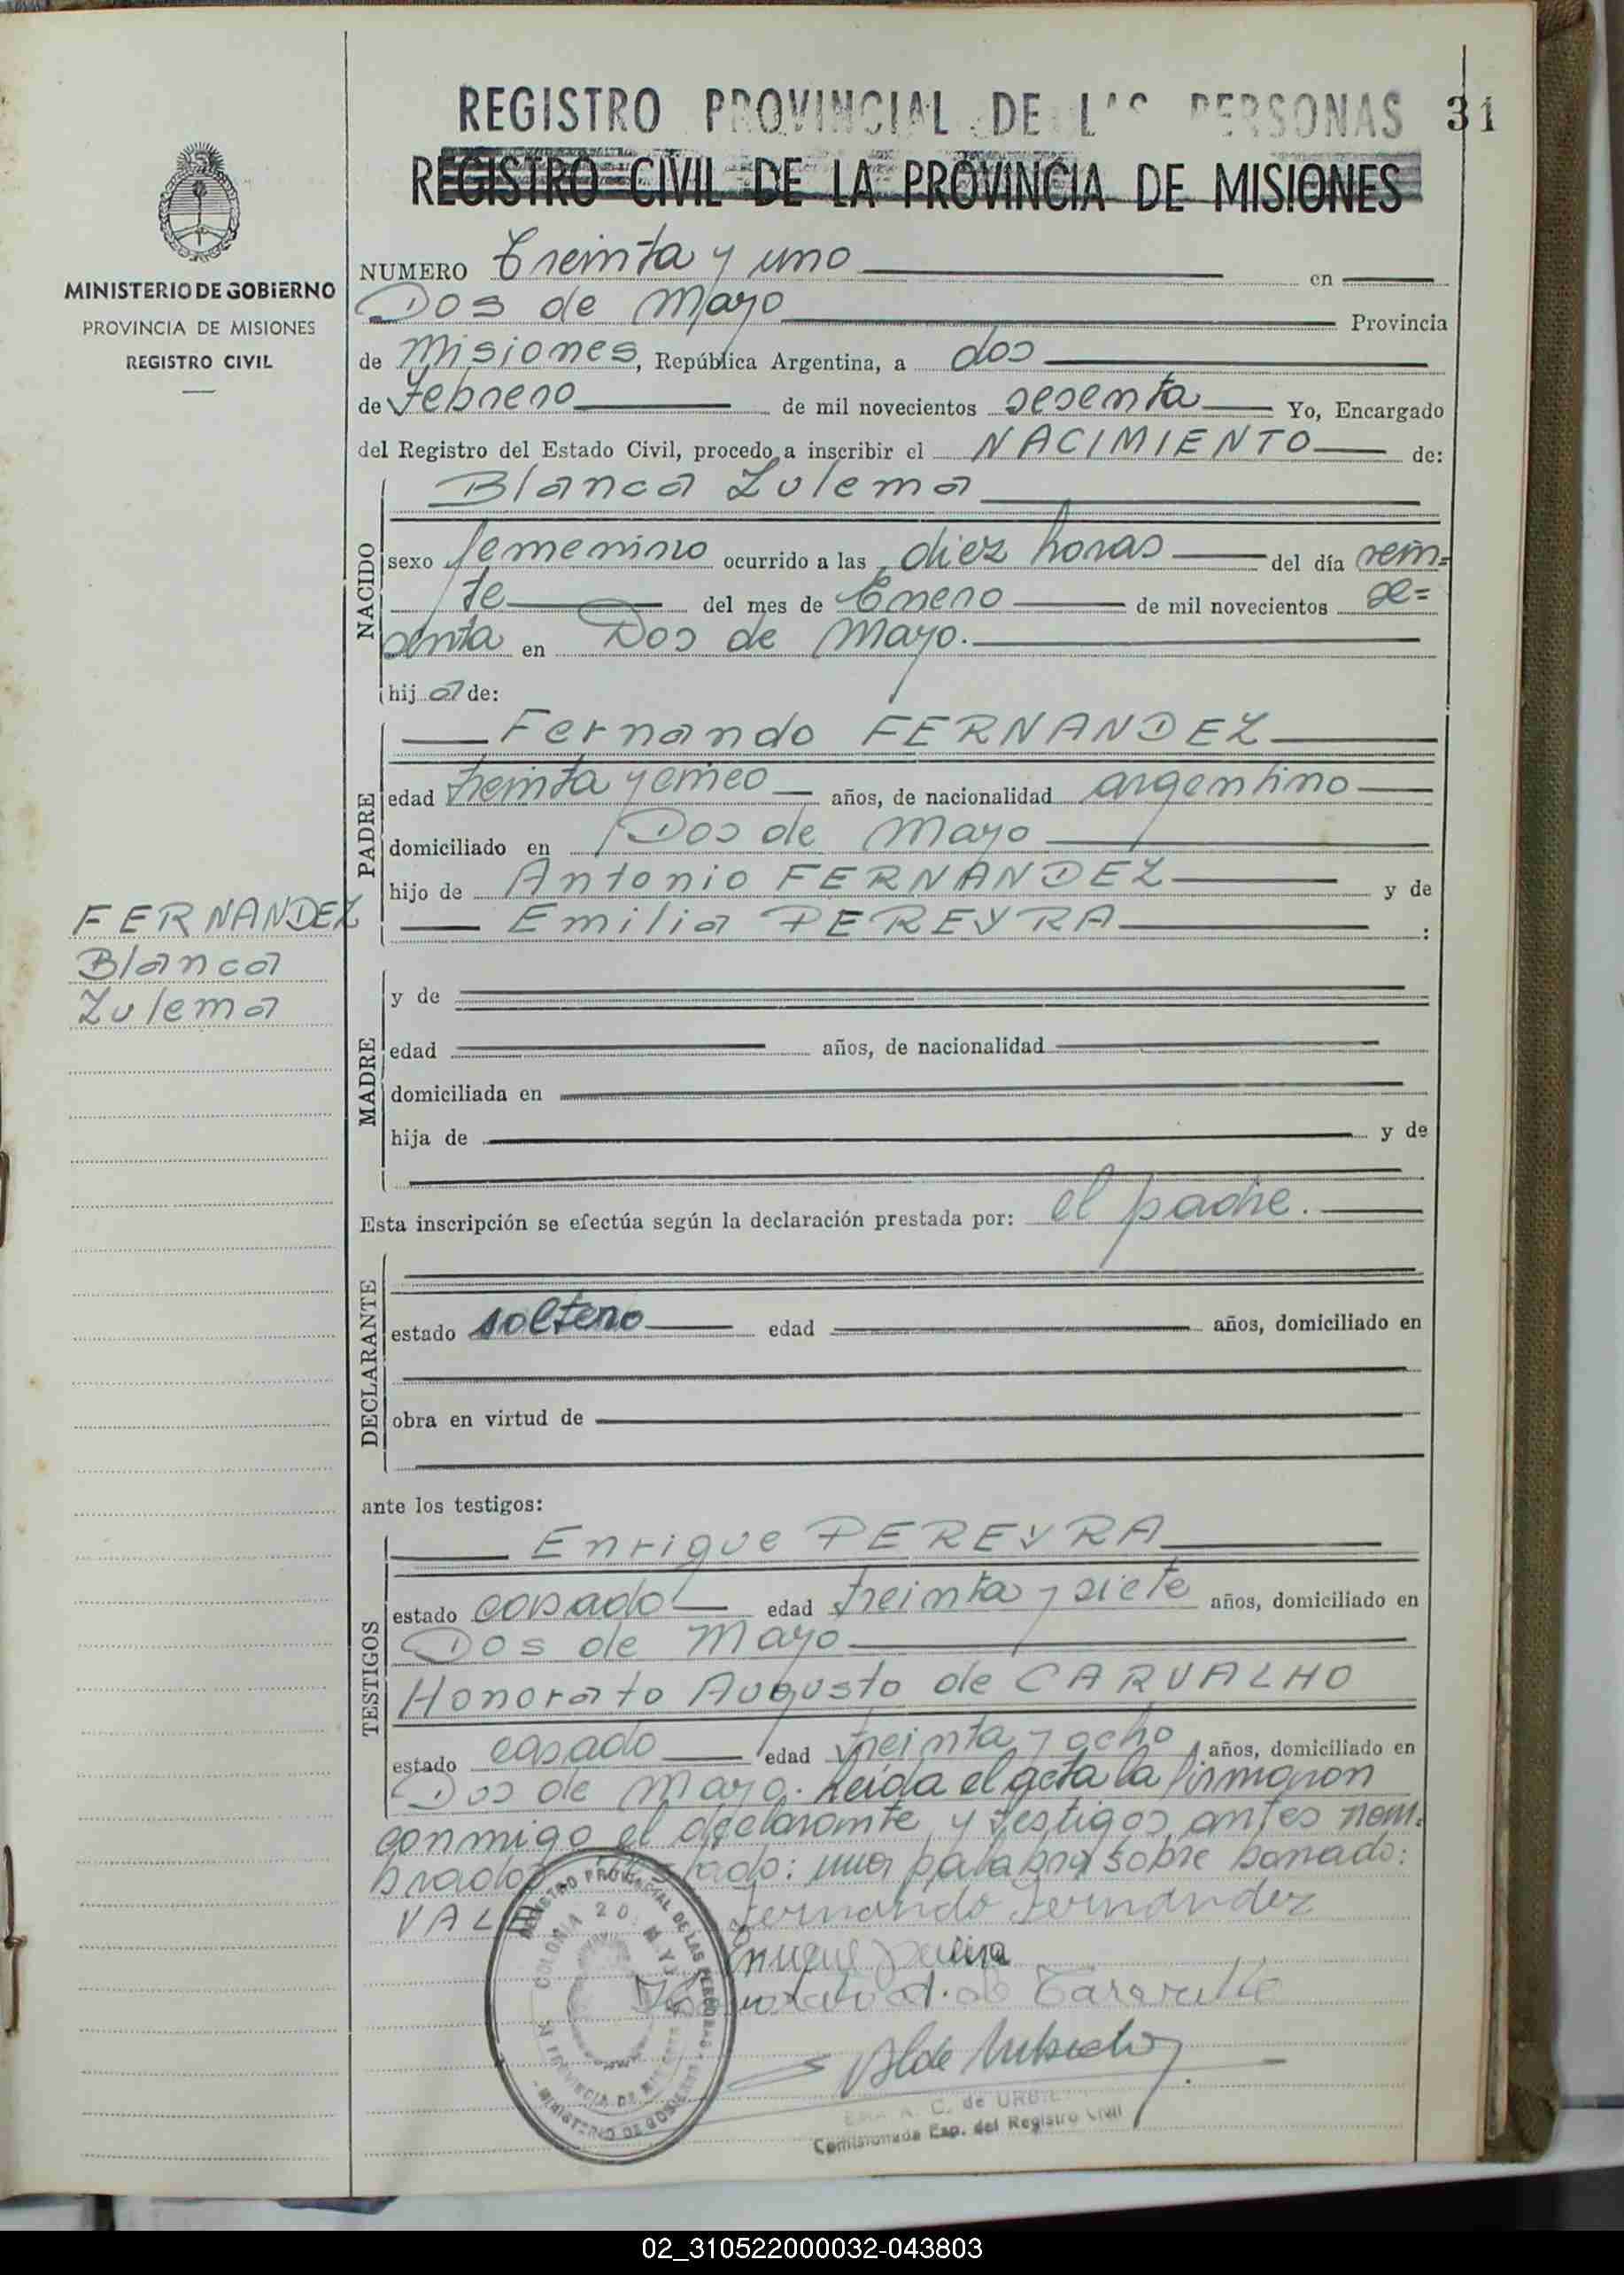 REGISTRO PROVINCIAL DE LAS PERSONAS 31
REGISTRO CIVIL DE LA PROVINCIA DE MISIONES
MINISTERIO DE GOBIERNO
PROVINCIA DE MISIONES
REGISTRO CIVIL
NUMERO Treinta y uno en
Dos de Mayo Provincia
de Misiones, República Argentina, a dos
de Febrero de mil novecientos sesenta Yo, Encargado
del Registro del Estado Civil, procedo a inscribir el NACIMIENTO de:
Blanca Zulema
NACIDO
sexo femenino ocurrido a las diez horas del día vein=
te del mes de Enero de mil novecientos se=
senta en Dos de Mayo.
hij a de:
Fernando FERNANDEZ
PADRE
edad treinta y cinco años, de nacionalidad argentino
domiciliado en Dos de Mayo
hijo de Antonio FERNANDEZ y de
Emilia PEREYRA :
FERNANDEZ
Blanca
Zulema
MADRE
y de
edad años, de nacionalidad
domiciliada en
hija de y de
Esta inscripción se efectúa según la declaración prestada por: el padre.
DECLARANTE
estado soltero edad años, domiciliado en
obra en virtud de
ante los testigos:
Enrique PEREYRA
TESTIGOS
estado casado edad treinta y siete años, domiciliado en
Dos de Mayo
Honorato Augusto de CARVALHO
estado casado edad treinta y ocho años, domiciliado en
Dos de Mayo. Leída el acta la firmaron
conmigo el declarante y testigos antes nom=
brados. una palabra sobre borrado:
VALE
Fernando Fernandez
REGISTRO PROVINCIAL DE LAS PERSONAS
COLONIA 2 DE MAYO
PROVINCIA DE MISIONES
MINISTERIO DE GOBIERNO
C. de URBIE
Comisionada Esp. del Registro Civil
02_310522000032-043803